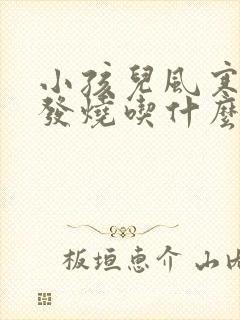 小孩兒風寒
發燒喫什麼
板垣恵介 山内